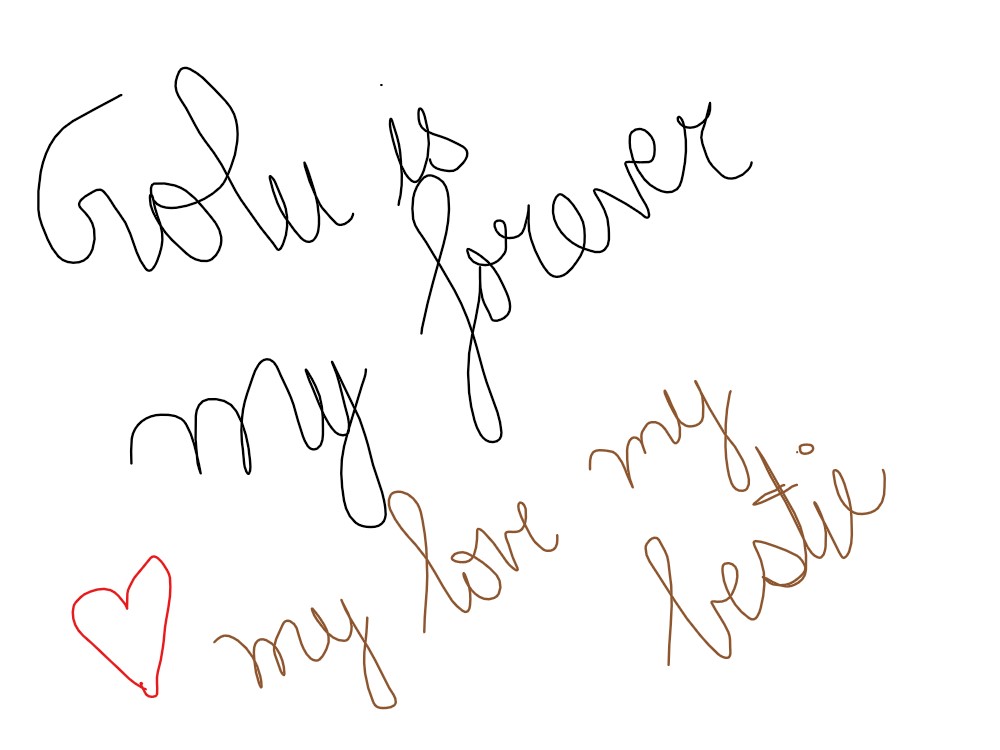 Tolu is
forever
my
my love
my
bestie